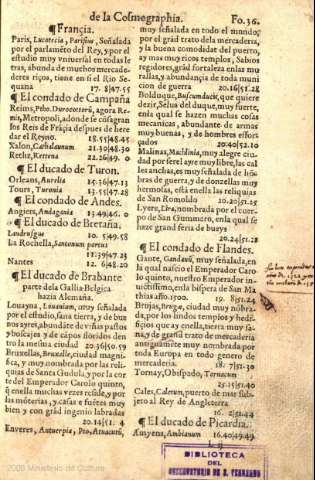 de la Cosmographia. Fo. 36.
¶ Francia.
Paris, Lucotecia, Parisius, Señalada
por el parlaméto del Rey, y por el
estudio muy uniuersal en todas le
tras, abunda de muchos mercade
res ricos, tiene en si el Rio Se
quana 17. 8|47.55
¶ El condado de Campaña
Reims, Pobo. Durocotorũ, agora Re-
mis, Metropoli, adonde se cõsagran
los Reis de Frãcia despues de here
dar el Reyno. 18.55|48.45
Xalon, Cathalaunum 21.30|48.30
Rethz, Retterna 22.26|49. 0
¶ El ducado de Turon.
Orleans, Aurelia 15.36|47.13
Tours, Turonia 13.55|47.28
¶ El condado de Andes.
Angiers, Andagania 13.49|46. 0
¶ El ducado de Bretaña.
Landrusgue 10. 5|49.58
La Rochella, Santonum portus
11.39|47.23
Nantes 12. 6|48.20
¶ El ducado de Brabante
parte dela Gallia Belgica
hazia Alemaña.
Louayna, Louanium, muy señalada
por el estudio, sana tierra, y de bue
nos ayres, abundãte de viñas pastos
y boscajes y de cãpos floridos den
tro la mesma ciudad 20.36|50.59
Bruxellas, Bruxelle, ciudad magni-
fica, y muy nombrada por las reli-
quias de Santa Gudula, y por la cor
te del Emperador Carolo quinto,
q̃ enella muchas vezes reside, y por
las mõterias, y casas e fuẽtes muy
bien y con grãd ingenio labradas
20.14|51. 4
Enveres, Antuerpia, Pto, Atuacutũ,
muy señalada en todo el mundo,
por el grãd trato dela mercaderia,
y la buena comodidad del puerto,
ay mas muy ricos templos, Sabios
regidores, grãd fortaleza enlas mu
rallas, y abundançia de toda muni
cion de guerra 20.16|51.28
Bolduque, Buscumducis, que quiere
dezir, Selua del duque, muy fuerte,
enla qual se hazen muchas cosas
mecanicas, abundante de armas
muy buenas, y de hombres esfor
çados 20.40|52.10
Malinas, Machlinia, muy alegre ciu
dad por ser el ayre muy libre, las cal
les anchas, es muy señalada de hõ-
bres de guerra, y de donzellas muy
hermosas, està enella las reliquias
de San Romoldo 20.20|51.25
Lyere, Lyra, nombrada por el cuer-
po de San Gummero, enla qual se
haze grand feria de bueys
20.24|51.28
¶ El condado de Flandes.
Gante, Gandauũ, muy señalada, en
la qual nascio el Emperador Caro
lo quinto, nuestro Emperador in-
uictissimo, enla bispera de San Ma
thias año.1500. 19. 8|51.24
Brujas, Bruge, ciudad muy nõbra-
da, por los lindos templos y hedifi-
cios que ay enella, tierra muy sa-
na, y de grãd trato de mercaderia
antiguamẽte muy nombrada por
toda Europa en todo genero de
mercaderia. 18. 7|51.30
Tornay, Obispado, Tornacum
25.15|51.40
Cales, Caletum, puerto de mar sub je
to al Rey de Anglaterra.
16. 2|51.44
¶ El ducado de Picardia.
Amyens, Ambianum 16.40|49.49
BIBLIOTECA
DEL
OBSERVATORIO DE S. FERNANDO
2008 Ministerio de Cultura